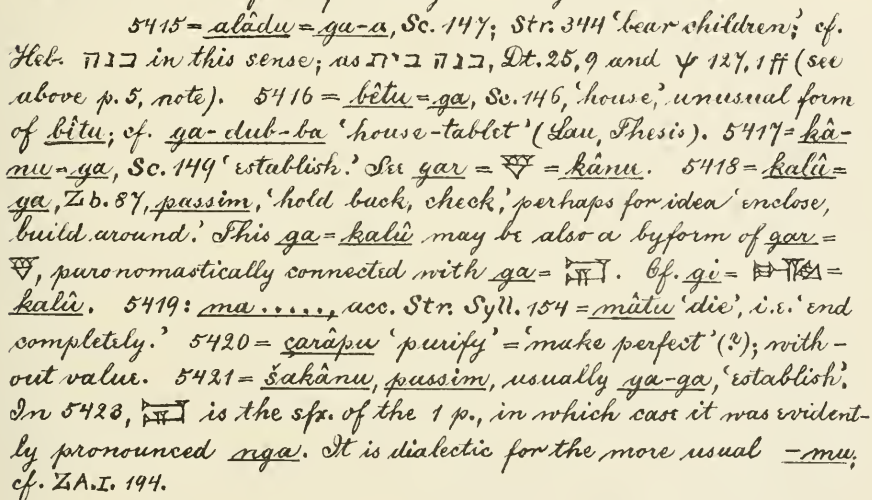 5415 = alâdu = ga-a, Sc. 147; Str. 344 'bear children;' cf.
Heb. בנה in this sense; as בנה בית, Dt. 25, 9 and ψ 127, 1 ff (see
above p. 5, note). 5416 = bêtu = ga, Sc. 146, 'house,' unusual form
of bîtu; cf. ga-dub-ba 'house-tablet' (Lau, Thesis). 5417 = kâ-
nu = ga, Sc. 149 'establish.' See gar = 𒃻 = kânu. 5418 = kalû =
ga, Zb. 87, passim, 'hold back, check,' perhaps for idea 'enclose,
build around.' This ga = kalû may be also a byform of gar =
𒃻, paronomastically connected with ga = 𒂷. Cf. gi = =
kalû. 5419: ma....., acc. Str. Syll. 154 = mâtu 'die', i.e. 'end
completely.' 5420 = çarâpu 'purify' = 'make perfect' (?); with-
out value. 5421 = šakânu, passim, usually ga-ga, 'establish'.
In 5423, 𒂷 is the sfx. of the 1 p., in which case it was evident-
ly pronounced nga. It is dialectic for the more usual -mu;
cf. ZA. I. 194.